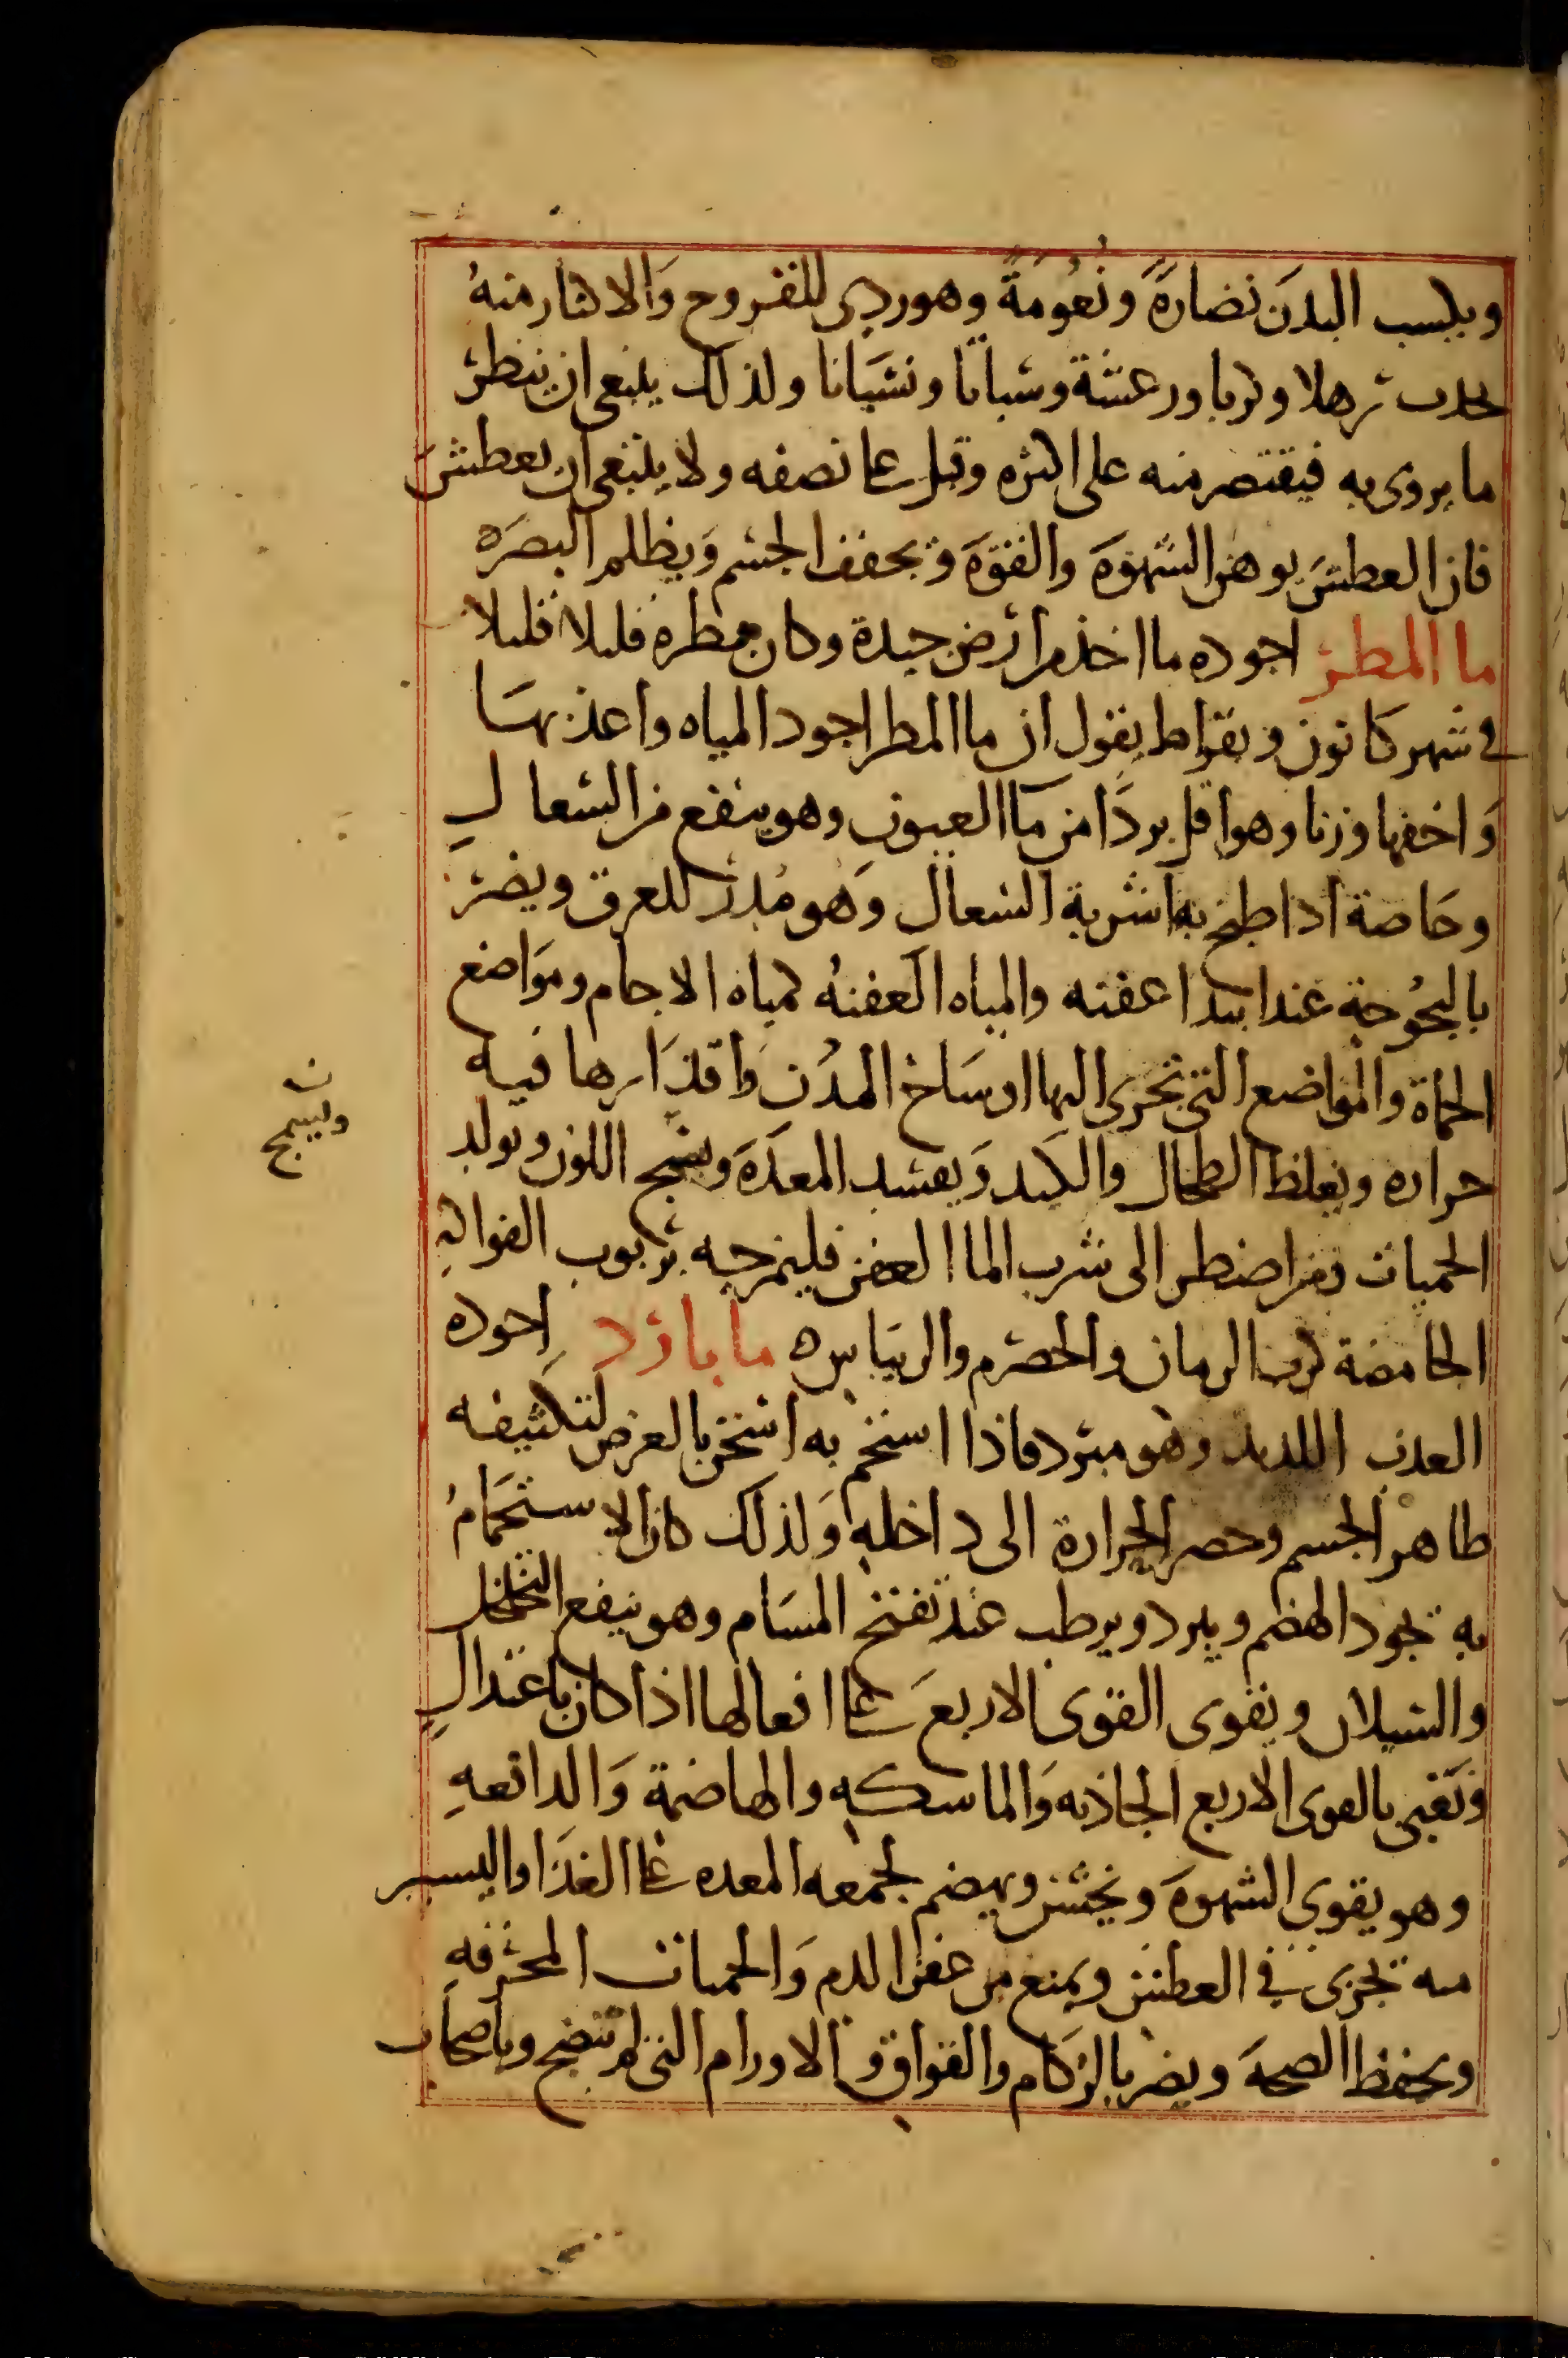 ويكسب البدَن نضارةً ونُعُومَةً وهو ردى للقروح وَالاكثار منهُ
يحدث ترهلا وكربا ورعشة وسباتا ونسيانا ولذلك ينبغى ان ينظر
ما يروى به فيقتصر منه على اكثره وقيل على نصفه ولا ينبغى ان يعطش
فان العطش يوهن الشهوَة والقوَة ويجفف الجسم وَيظلم البصَر ه
ما المطر اجوده ما اخذ من ارض جيدة وكان مطره قليلا قليلا
فى شهر كانون وبقراط يقول ان ما المطر اجود المياه واعذبهَا
وَاخفها وزنا وهو اقل بردًا من ما العيون وهو ينفع من السعال
وخاصة اذا طبخ به اشربة السعال وَهو مُدر للعرق ويضر
بالبحُوحة عند ابتدا عفنه والمياه العفنهُ كمياه الاجام ومَواضع
الحماة والمواضع التى تجرى اليها اوسَاخ المدُن وَاقذَارها فيه
حراره ويغلظ الطحال والكبد وَيفسد المعدَة ويسمج اللون ويولد
ن
وليسمج
الحميات ومن اضطر الى شرب الما العفن فليمزجه بربوب الفواكهِ
الحامضة كرب الرمان والحصرم والريباس ه ما بارد اجوده
العذب اللذيذ وهو مبرد فاذا استحم به اسخن بالعرض لتكثيفه
ظاهر الجسم وحصر الحرارة الى داخله وَلذلك كان الاستحمَامُ
به يجود الهضم ويبرد ويرطب عند تفتح المسَام وهو ينفع التخلخل
والسيلان ويقوى القوى الاربع على افعالها اذا كان باعتدالِ
وَتَعْنى بالقوى الاربع الجاذبه وَالماسكه والهاضمة وَالدافعهِ
وهو يقوى الشهوة ويحسن ويهضم لجمعه المعده على الغذَا واليسير
منه يجزى فى العطش ويمنع من عفن الدم وَالحميات المحرقهِ
ويحفظ الصحة ويضر بالزكام والفواق والاورام التى لم تنضج وباصحاب